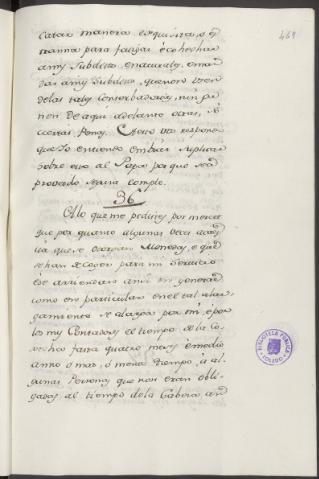 461
Catar manera exquisita, o es
tranna para fatigar, è cohechar
amis Subditos, enaturales, e man
dar amis Subditos, que non usen
delas tales Conserbadorias, nin ga
nen de aqui adelante otras, sò
ciertas Penas. A esto vos respondo
que Yo entiendo embiar suplicar
sobre ello al Papa porque sea
proveido segun cumple.
36
A lo que me pedistes por merced
que por quanto algunas veces acaes
cia que se echaran Monedas, e que
se han de coger para mi Servicio
è se arriendan ansi en general
como en particular en el tal alar
gamiento se alargan por mi, e por
los mis Contadores el tiempo de la Co
secha fasta quatro meses è medio
anno ò mas, ò menos tiempo, è al
gunas Personas que non eran obli
gadas al tiempo de la Cabeza and
BIBLIOTECA PUBLICA
TOLEDO